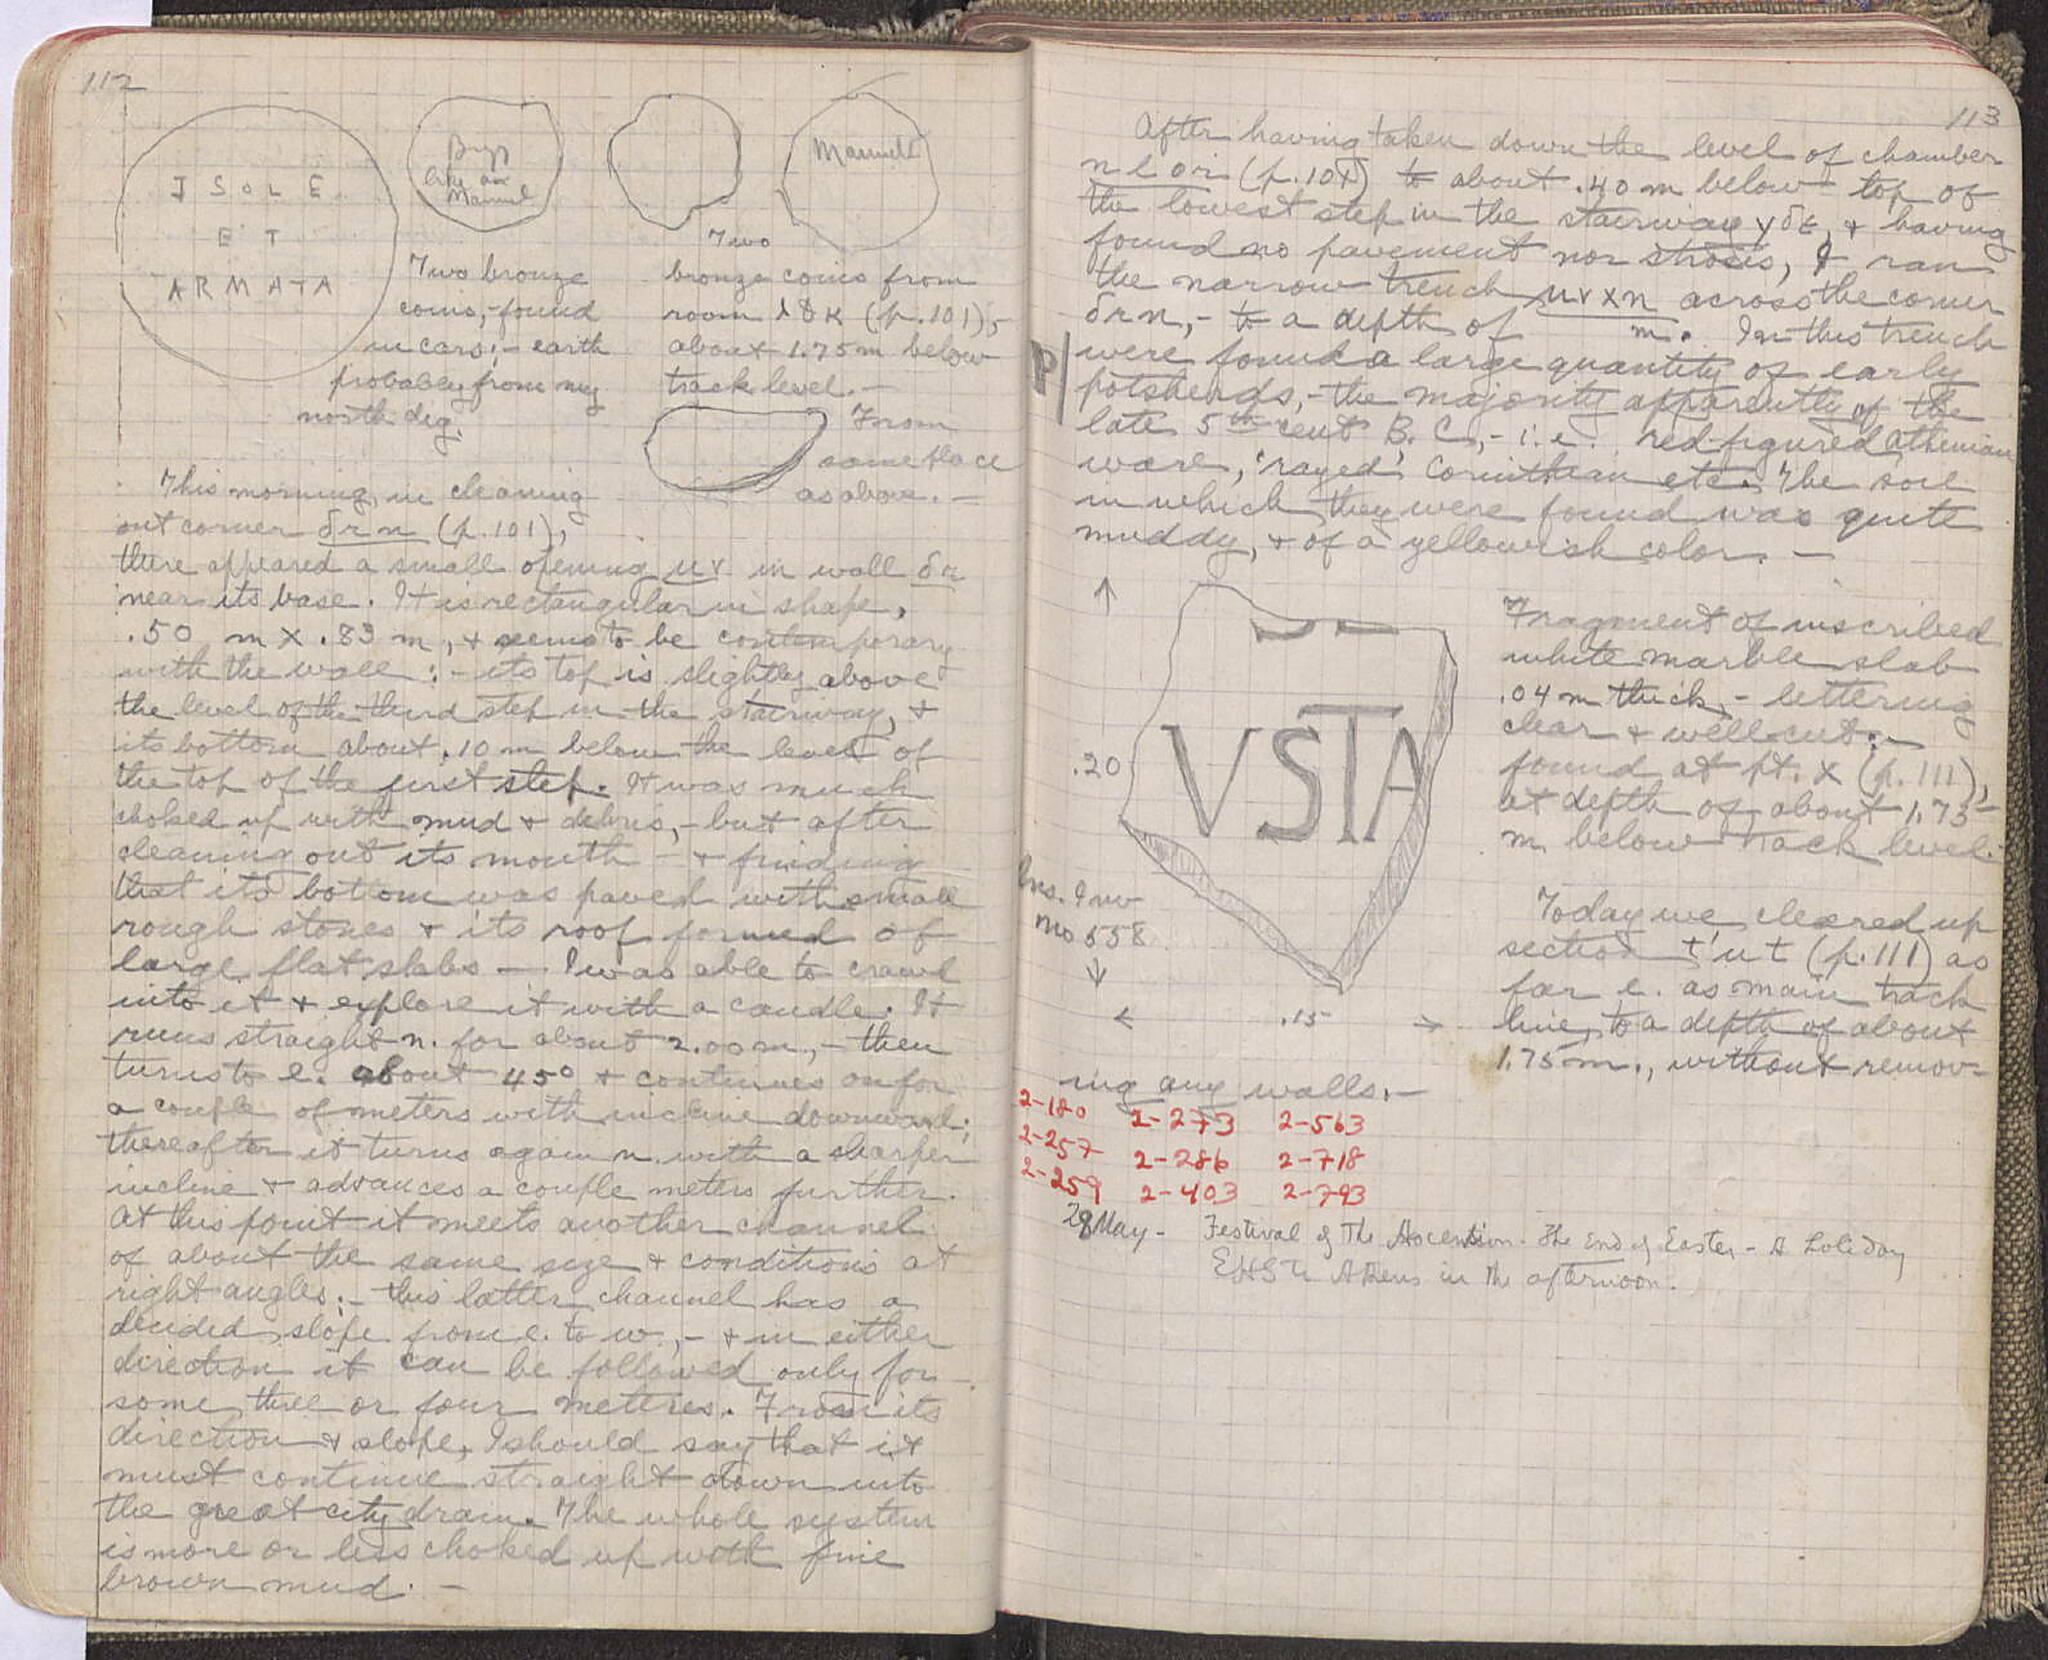 112
I S O L E
E T
ARMATA
Byz
like an
Manuel
Manuel I
Two bronze
coins, - found
in cars; - earth
probably from my
north dig.
Two
bronze coins from
room λθκ (p. 101), -
about 1.75 m below
track level. -
From
same place
as above. -
This morning, in cleaning
out corner δ r n (p. 101),
there appeared a small opening uv in wall δr
near its base. It is rectangular in shape,
.50 m x .83 m, + seems to be contemporary
with the wall: - its top is slightly above
the level of the third step in the stairway, +
its bottom about .10 m below the level of
the top of the first step. It was much
choked up with mud + debris, - but after
cleaning out its mouth - + finding
that its bottom was paved with small
rough stones + its roof formed of
large flat slabs - I was able to crawl
into it + explore it with a candle. It
runs straight n. for about 2.00 m, - then
turns to e. about 45° + continues on for
a couple of meters with incline downward;
thereafter it turns again n. with a sharper
incline + advances a couple meters further.
At this point it meets another channel
of about the same size + conditions at
right angles: - this latter channel has a
decided slope from e. to w., - + in either
direction it can be followed only for
some three or four meters. From its
direction + slope, I should say that it
must continue straight down into
the great city drain. The whole system
is more or less choked up with fine
brown mud. -
113
After having taken down the level of chamber
n l o i (p. 101) to about .40 m below top of
the lowest step in the stairway γδε, + having
found no pavement nor strosis, I ran
the narrow trench uvxn across the corner
δrn, - to a depth of m. In this trench
P
were found a large quantity of early
potsherds, - the majority apparently of the
late 5th cent B. C., - i.e. red-figured Athenian
ware, 'rayed' Corinthian etc. The soil
in which they were found was quite
muddy, + of a yellowish color. -
VSTA
.20
.15
Ins. Inv
No 558
Fragment of inscribed
white marble slab
.04 m thick, - lettering
clear + well cut: -
found at pt. x (p. 111),
at depth of about 1.75
m below track level.
Today we cleared up
section t'ut (p. 111) as
far e. as main track
line, to a depth of about
1.75 m., without remov-
ing any walls. -
2-180 2-273 2-563
2-257 2-286 2-718
2-259 2-403 2-793
28 May - Festival of The Ascention - The End of Easter - A holiday
EHS to Athens in the afternoon.